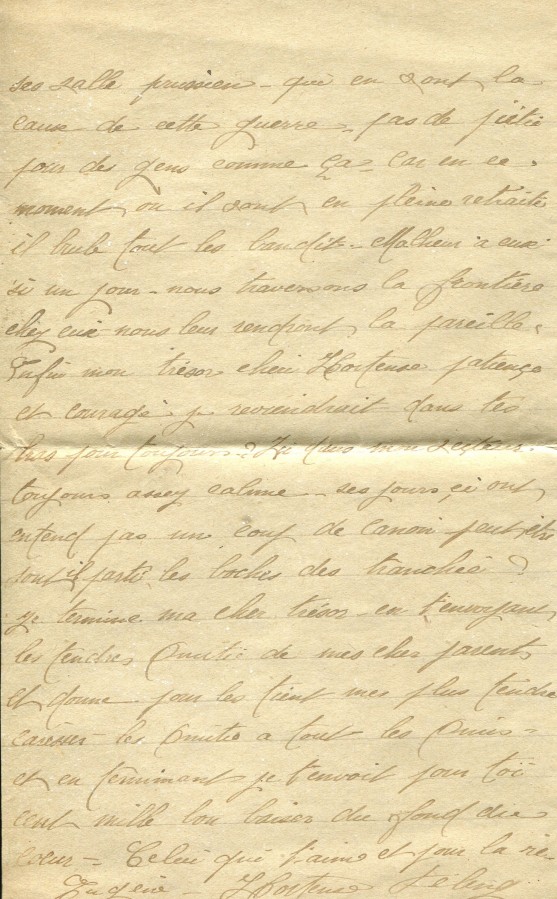 ses salle prussien - qui en sont la
cause de cette guerre - pas de pietié
pour des gens comme ça - Car en ce
moment ou il sont en pleine retraite
il brule tout les bandit - Malheur a eux
si un jour - nous traversons la frontière
chez eux nous leur rendront la pareille.
Enfin mon trésor cheri Hortense patience
et courage je reviendrait dans tes
bras pour toujours. Ici dans mon secteur.
toujours assez calme - ses jours çi ont
entend pas un coup de canon peut etre
sont il parti les boches des tranchée ?
je termine ma cher trésor - en t'envoyant
les tendres Amitié de mes cher parents
et donne pour les tient mes plus tendre
caresser les Amitié a tout les Amis -
et en terminant je t'envoit pour toi
cent mille bon baiser du fond du
coeur - Celui qui t'aime et pour la vie
Eugène - Hortense